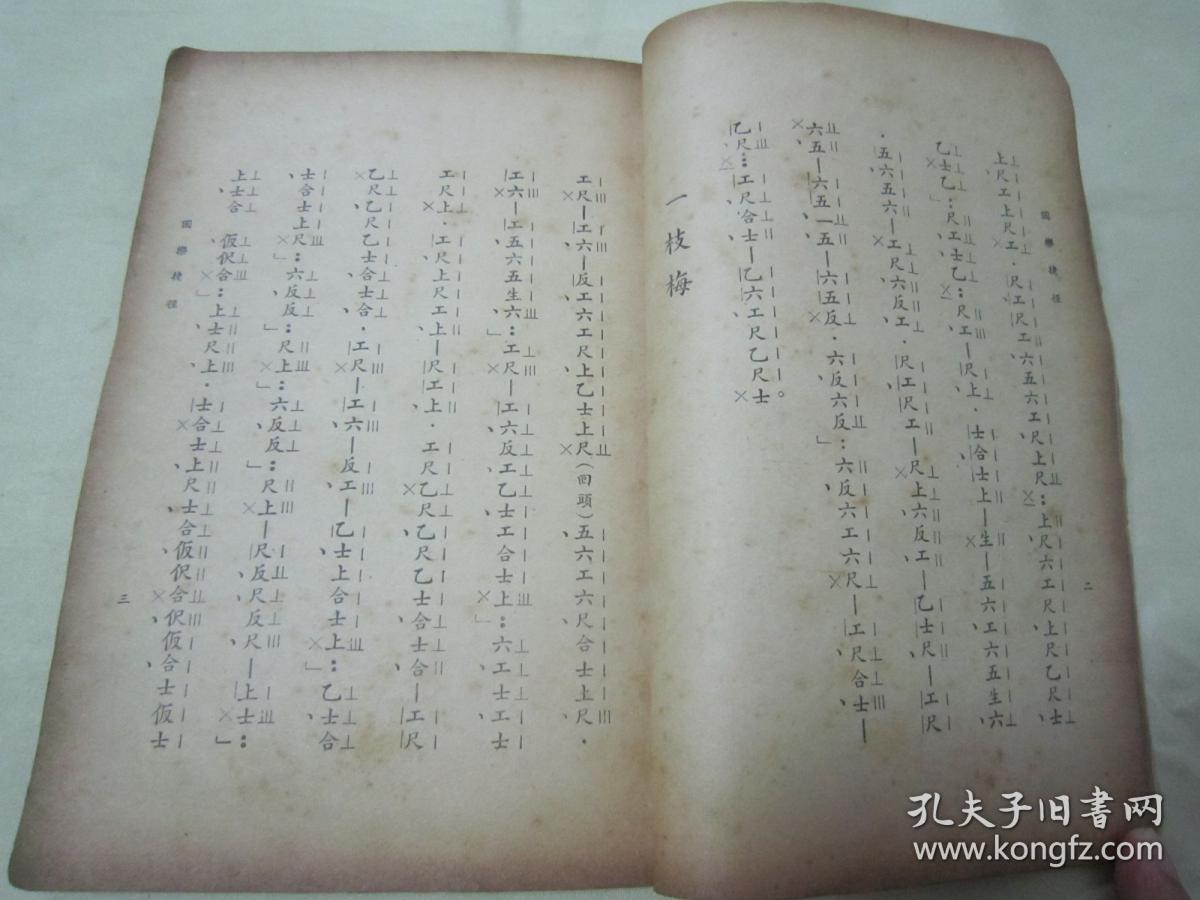 國樂捷徑
二
上尺工上尺工．尺工尺工六五六工尺上尺：上尺六工尺上尺乙尺士
乙士乙：尺工士乙：尺工—尺上．士合士上—生—五六工六五生六
．五六五六—工尺六反工．尺工尺工—尺上六反工—乙士尺—工尺
六五—六五一五—六五反．六反六反：六反六工六尺—工尺合士—
乙尺：工尺合士—乙六工尺乙尺士。
一枝梅
工尺—工六—反工六工尺上乙士上尺（回頭）五六工六尺合士上尺．
工六—工五六五生六：工尺—工六反工乙士工合士上：六工士工士
工尺上．工尺上尺工上—尺工上．工尺乙尺乙尺乙士合士合—工尺
乙尺乙尺乙士合士合．工尺—工六—反工—乙士上合士上：乙士合
士合士上尺：六反反：尺上：六反反：尺上—尺反尺反尺—上士：
上士合仮伬合：上士尺上．士合士上尺士合仮伬合伬仮合士仮士
國樂捷徑
三
孔夫子旧书网
www.kongfz.com